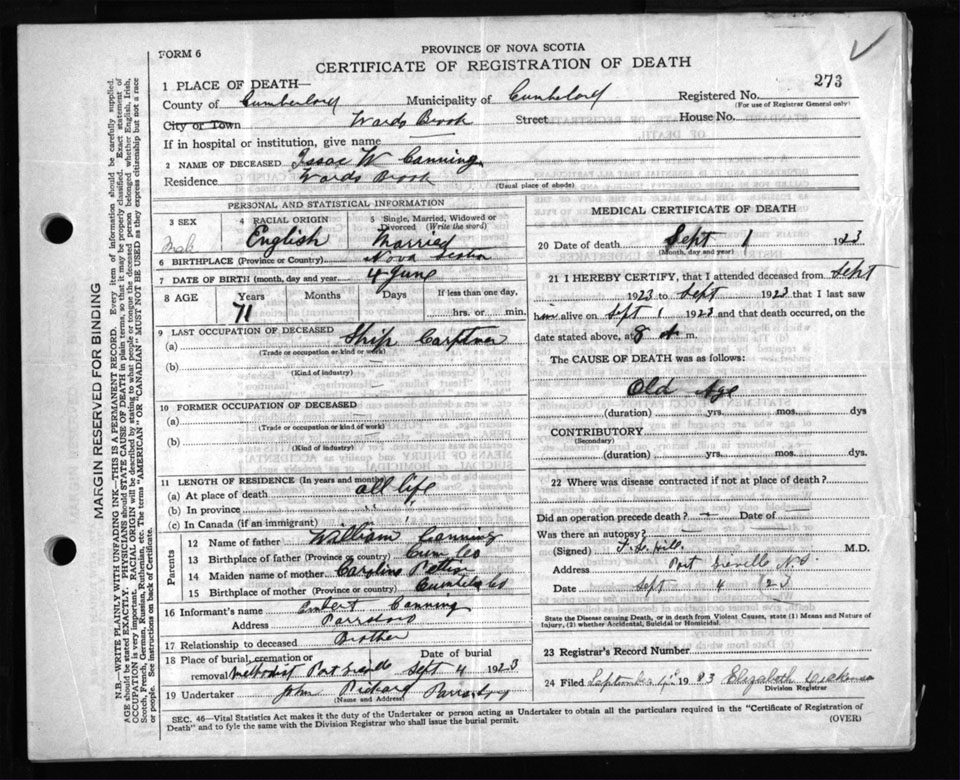 FORM 6
PROVINCE OF NOVA SCOTIA
CERTIFICATE OF REGISTRATION OF DEATH
273
1 PLACE OF DEATH—
County of Cumberlord Municipality of Cumbelord Registered No.
(For use of Registrar General only)
City or Town Wards Brook Street House No.
If in hospital or institution, give name
2 NAME OF DECEASED Isaac W Canning
Residence Wards Brook
(Usual place of abode)
PERSONAL AND STATISTICAL INFORMATION
3 SEX Male
4 RACIAL ORIGIN English
5 Single, Married, Widowed or Divorced (Write the word) Married
6 BIRTHPLACE (Province or Country) Nova Scotia
7 DATE OF BIRTH (month, day and year) 4 June
8 AGE Years 71 Months Days If less than one day, hrs. or min.
9 LAST OCCUPATION OF DECEASED
(a) Ship
(Trade or occupation or kind or work)
(b)
(Kind of industry)
10 FORMER OCCUPATION OF DECEASED
(a)
(Trade or occupation or kind of work)
(b)
(Kind of industry)
11 LENGTH OF RESIDENCE (In years and months)
(a) At place of death all life
(b) In province " "
(c) In Canada (if an immigrant)
Parents
12 Name of father William Canning
13 Birthplace of father (Province or country) Cum Co
14 Maiden name of mother Caroline
15 Birthplace of mother (Province or country)
16 Informant's name Canning
Address Parrsboro
17 Relationship to deceased Brother
18 Place of burial, cremation or removal Methodist Port Date of burial Sept 4 1923
19 Undertaker John
(Name and Address)
MEDICAL CERTIFICATE OF DEATH
20 Date of death Sept 1 1923
(Month, day and year)
21 I HEREBY CERTIFY, that I attended deceased from Sept
1923 to Sept 1923 that I last saw
him alive on Sept 1 1923 and that death occurred, on
date stated above, at 8 A m.
The CAUSE OF DEATH was as follows:
Old Age
(duration) yrs. mos. dys
CONTRIBUTORY
(Secondary)
(duration) yrs. mos. dys.
22 Where was disease contracted if not at place of death?
Did an operation precede death? — Date of —
Was there an autopsy? —
(Signed) M.D.
Address Port Greville N.S.
Date Sept 4 23
State the Disease causing Death, or in death from Violent Causes, state (1) Means and Nature of
Injury, (2) whether Accidental, Suicidal or Homicidal.
23 Registrar's Record Number
24 Filed 19 Elizabeth
Division Registrar
SEC. 46—Vital Statistics Act makes it the duty of the Undertaker or person acting as Undertaker to obtain all the particulars required in the "Certificate of Registration of
Death" and to fyle the same with the Division Registrar who shall issue the burial permit.
(OVER)
MARGIN RESERVED FOR BINDING
N.B.—WRITE PLAINLY WITH UNFADING INK—THIS IS A PERMANENT RECORD. Every item of information should be carefully supplied.
AGE should be stated EXACTLY. PHYSICIANS should STATE CAUSE OF DEATH in plain terms, so that it may be properly classified. Exact statement of
OCCUPATION is very important. RACIAL ORIGIN will be described by stating to what people or tongue the deceased person belonged whether English, Irish,
Scotch, French, German, Russian, Ruthenian, etc. The terms "AMERICAN" OR "CANADIAN" MUST NOT BE USED as they express citizenship but not a race
or people. See instructions on back of Certificate.